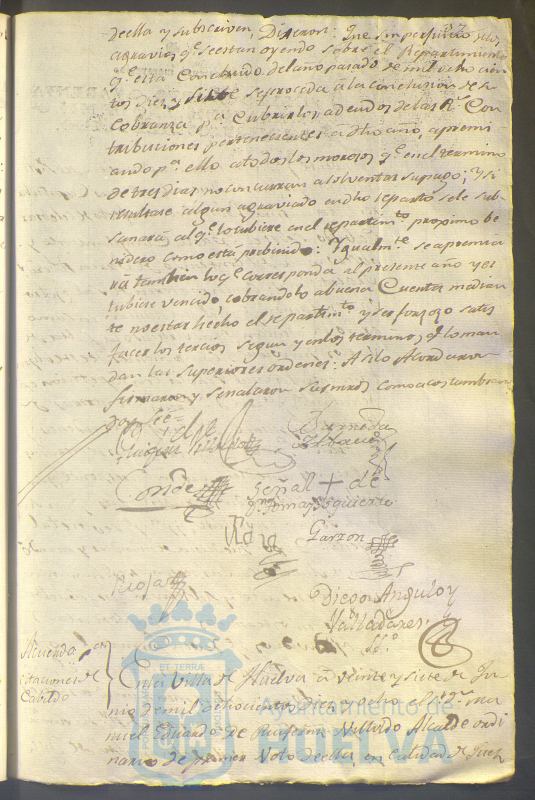 deella y subscriven, Dixeron: Que sin perjuicio delos
agravios qe. se estan oyendo sobre el Repartimiento
qe. está concluido del año pasado de mil ocho cien
tos diez y siete se proceda á la conclusion de su
Cobranza pa. cubrir los adeudos de las Rs. Con
tribuciones pertenecientes a dho año, apremi
ando pa. ello a todos los morosos qe. en el termino
de tres dias no concurran a solventar su pago; y si
resultare algun agraviado en dho reparto se le sub
sanará, al qe. lo tubiere en el repartimto. proximo be
nidero como está prebenido: Ygualmte. se apremia
rá tambien lo qe. corresponda al presente año y es
tubiere vencido, cobrandolo a buena Cuenta median
te no estar hecho el repartimto. y ser forzoso satis
facer los tercios segun y en los terminos qe. lo man
dan las superiores ordenes: Asi lo Acordaron
firmaron y señalaron sus mrds. como acostumbran
doy feé=
Conde
Señal + de
Tomas Yzquierdo
Garzon
Rioja
Diego Angulo y
Valladares
Huelva
citaciones de
Cabildo
En la Villa de Huelva á veinte y siete de Ju
nio de mil ochocientos diez y ocho: el Sr. Dn. Ma
nuel Eduardo de Alcalde ordi
nario de primer Voto de ella, en calidad de
Ayuntamiento de
HUELVA